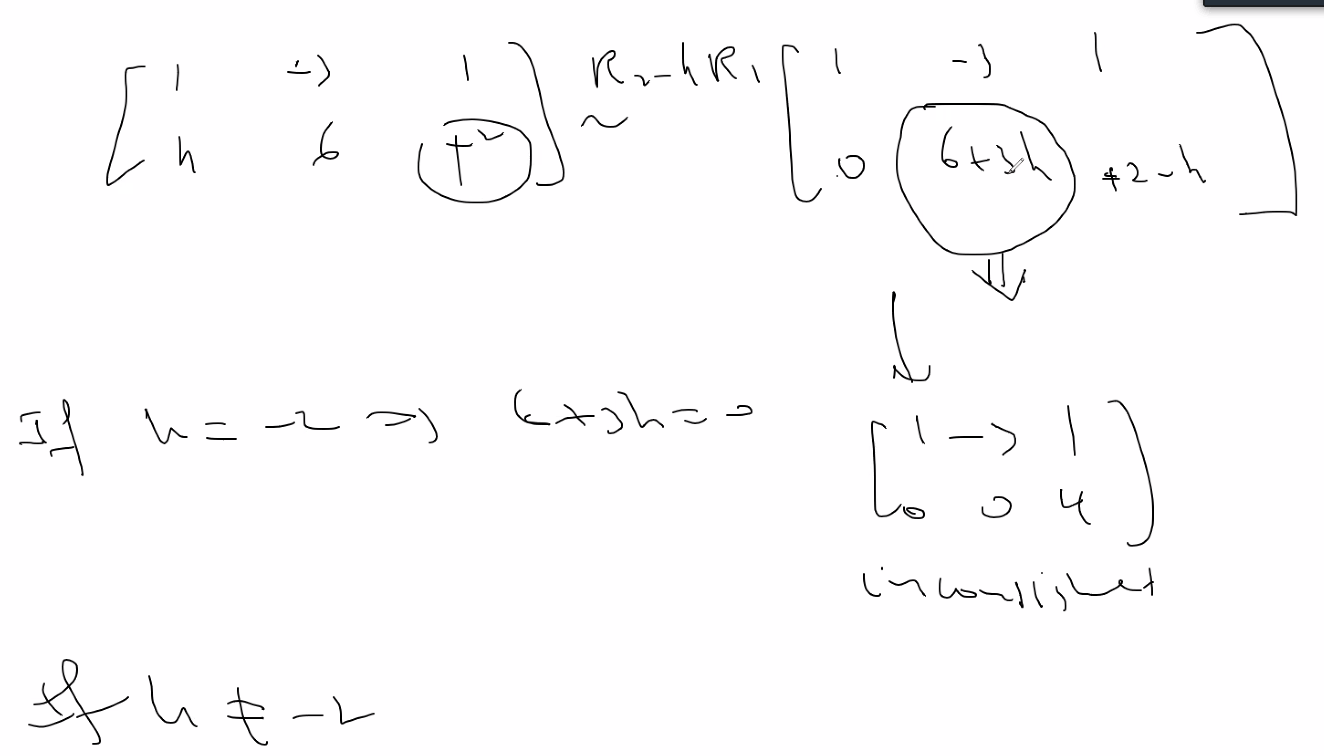 [ 1 -3 1 ] R₂-hR₁ [ 1 -3 1 ]
[ h 6 +2 ] ~ [ 0 6+3h +2-h ]
⇓
↓
If h = -2 ⇒ 6+3h = 0 [ 1 -3 1 ]
[ 0 0 4 ]
inconsistent
If h ≠ -2